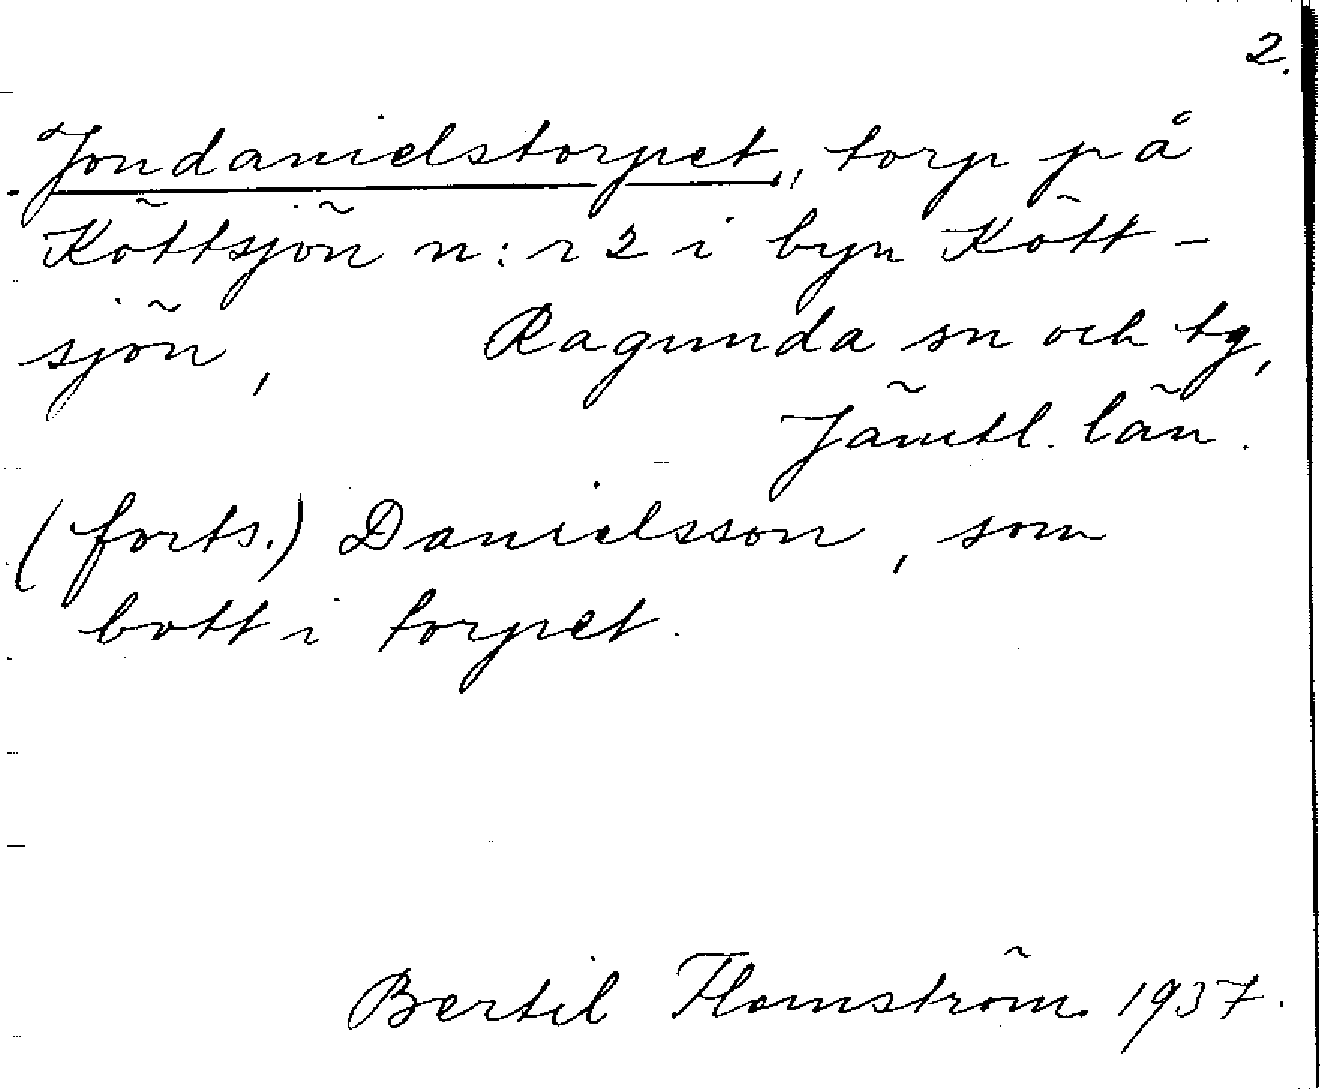 2.
Jondanielstorpet, torp på
Köttsjön n:r 2 i byn Kött-
sjön, Ragunda sn och tg,
Jämtl. län.
(forts.) Danielsson, som
bott i torpet.
Bertil Flemström 1937.